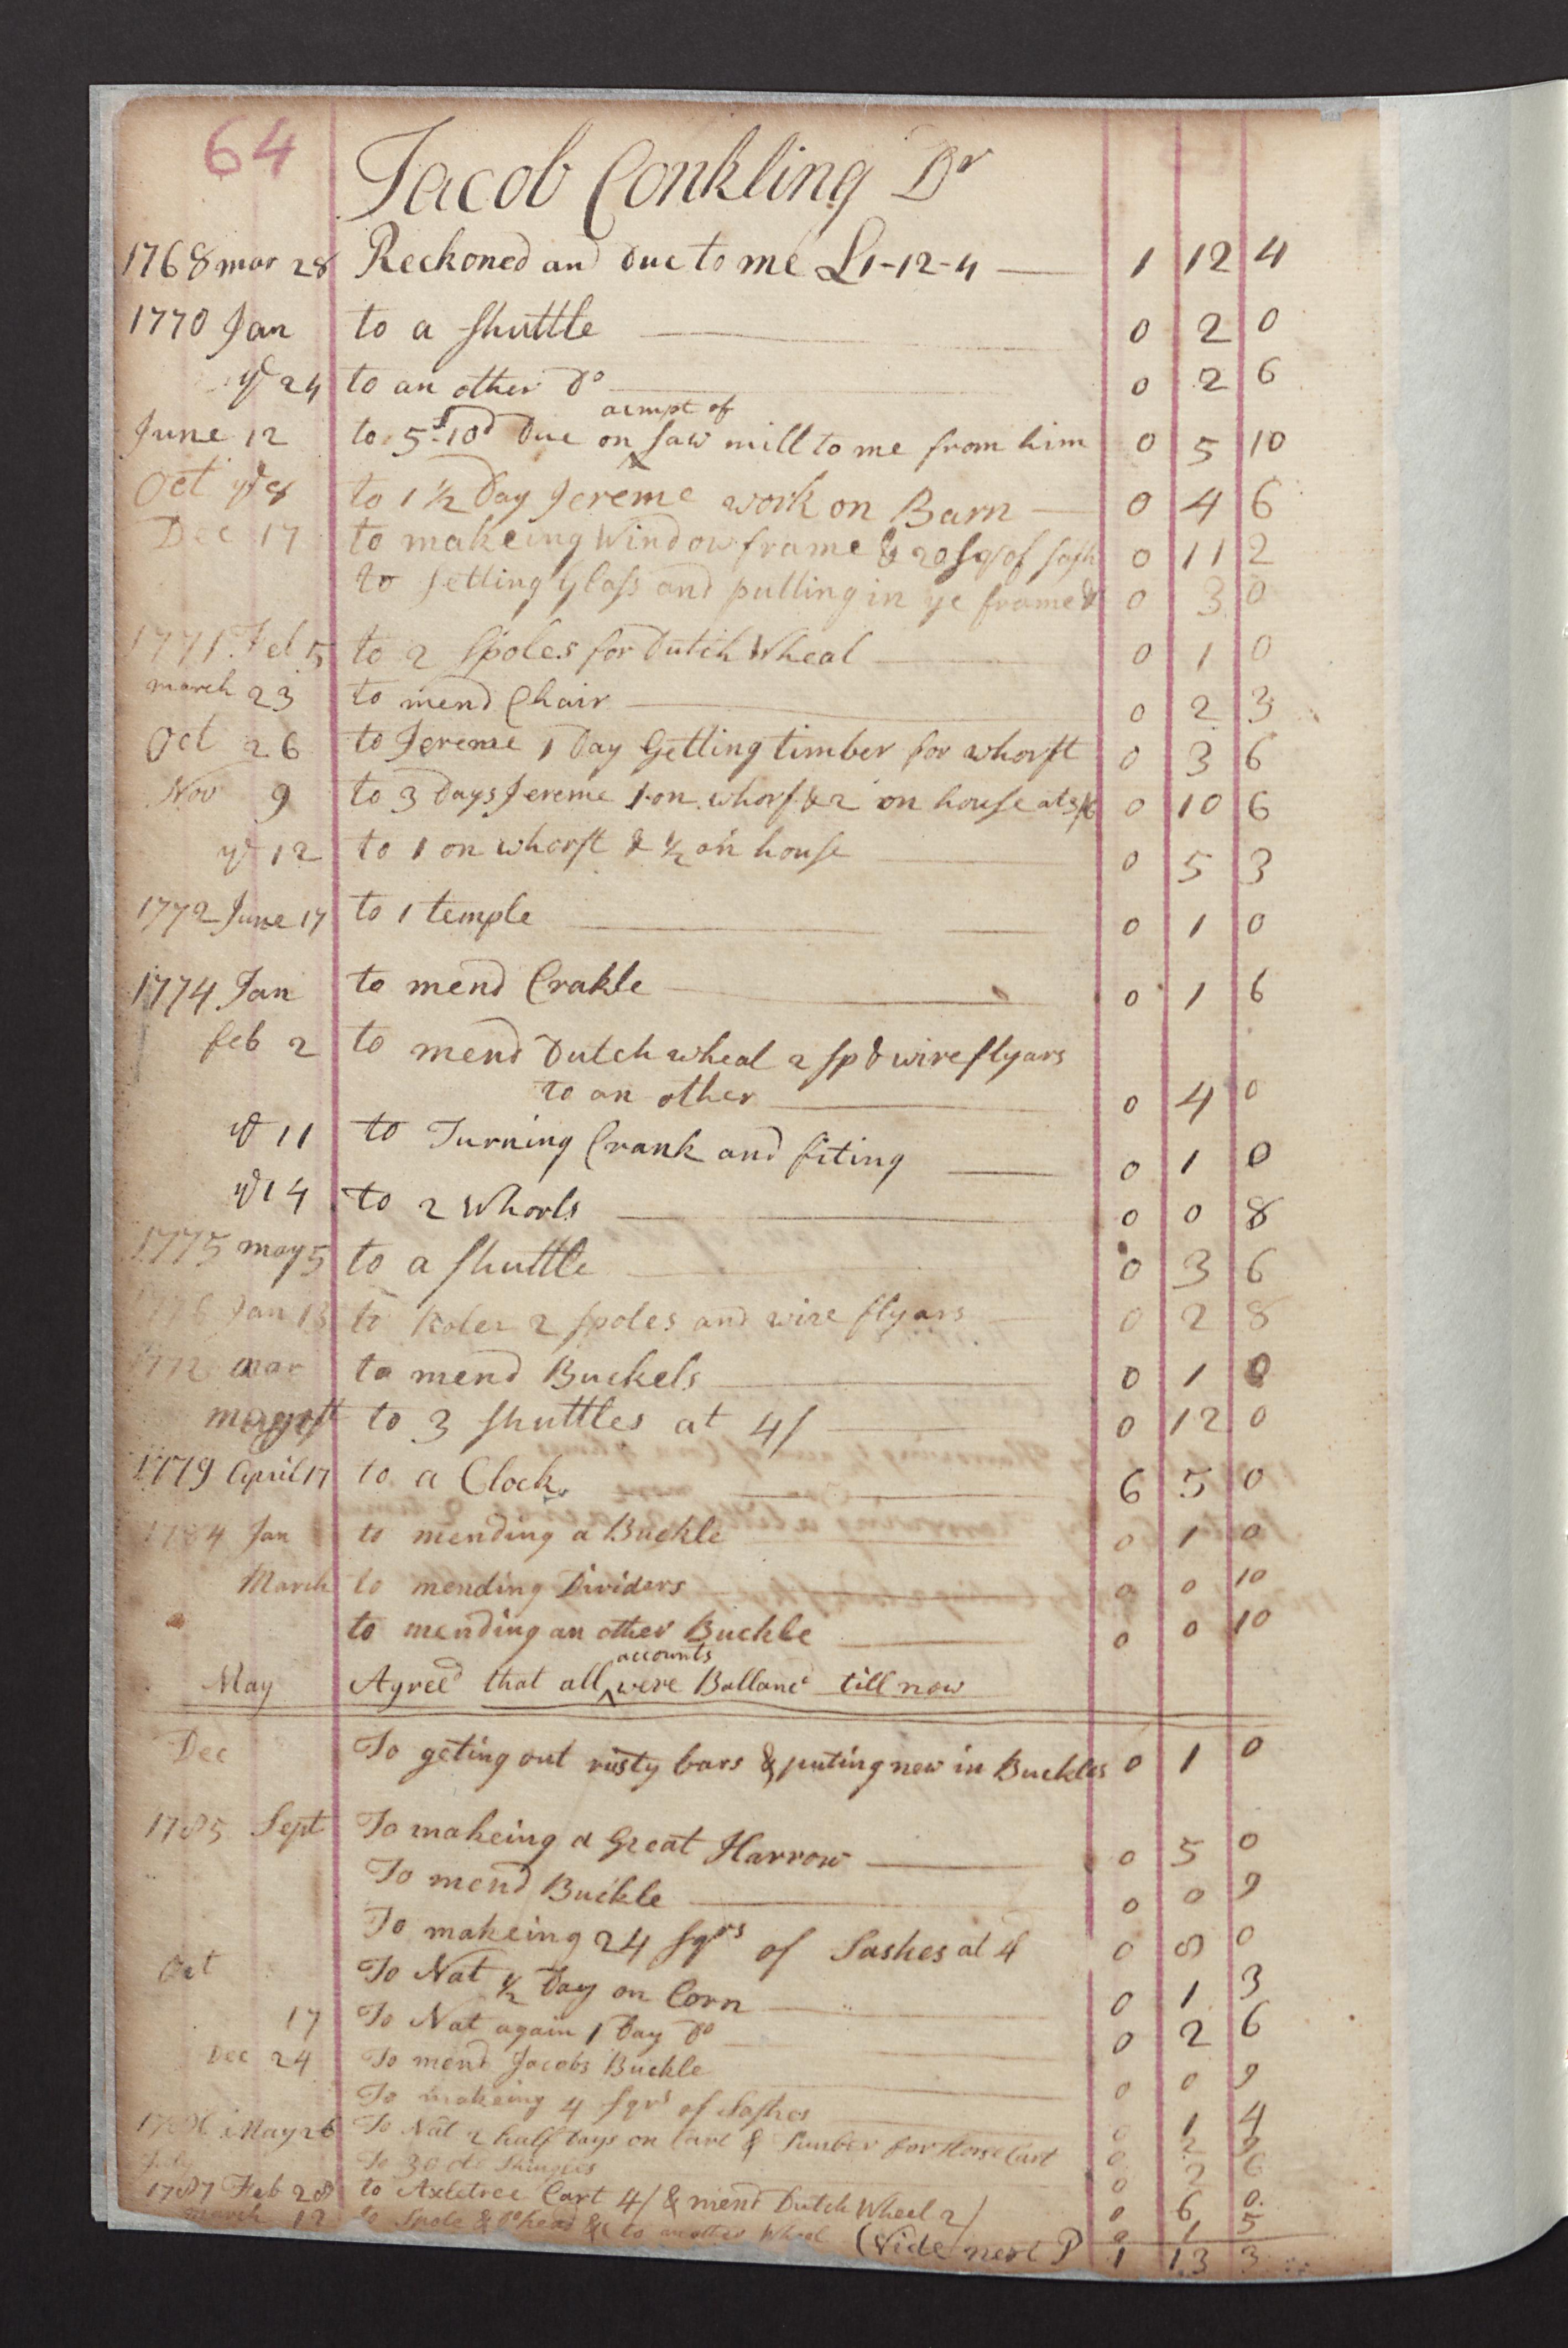 64
Jacob Conkling Dr
1768 mar 28 Reckoned and Due to me L1-12-4 1 12 4
1770 Jan to a Shuttle 0 2 0
ye 24 to an other Do 0 2 6
acmpt of
June 12 to 5s-10d Due on Saw mill to me from him 0 5 10
Oct ye 8 to 1 ½ Day Jereme work on Barn 0 4 6
Dec 17 to makeing Window frame & 20 sqr of sash 0 11 2
to setting Glass and putting in ye frame & 0 3 0
1771 Feb 5 to 2 Spoles for Dutch Wheal 0 1 0
march 23 to mend Chair 0 2 3
Oct 26 to Jereme 1 Day Getting timber for whorft 0 3 6
Nov 9 to 3 Days Jereme 1 on whorf & 2 on house at 3/6 0 10 6
ye 12 to 1 on whorft & ½ on house 0 5 3
1772 June 17 to 1 temple 0 1 0
1774 Jan to mend Crakle 0 1 6
feb 2 to mend Dutch wheal 2 sp & wire flyars
to an other 0 4 0
ye 11 to Turning Crank and fiting 0 1 0
ye 14 to 2 Whorls 0 0 8
1775 may 5 to a Shuttle 0 3 6
1776 Jan 13 to 2 spoles and wire flyars 0 2 8
mar to mend Buckels 0 1 0
to 3 shuttles at 4/ 0 12 0
1779 April 17 to a Clock 6 5 0
1784 Jan to mending a Buckle 0 1 0
March to mending Dividers 0 0 10
to mending an other Buckle 0 0 10
accounts
May Agreed that all were Ballancd till now
Dec To geting out rusty bars & puting new in Buckles 0 1 0
1785 Sept To makeing a Great Harrow 0 5 0
To mend Buckle 0 0 9
To makeing 24 sqrs of Sashes at 4 0 8 0
Oct To Nat ½ Day on Corn 0 1 3
17 To Nat again 1 Day Do 0 2 6
Dec 24 To mend Jacobs Buckle 0 0 9
To makeing 4 sqrs of Sashes 0 1 4
1786 May 26 To Nat 2 half Days on Cart & for Horse Cart 0 2 9
July To 30 Shingles 0 2 6
1787 Feb 28 to Axletree Cart 4/ & mend Dutch Wheel 2/ 0 6 0
march 12 to Spole & to another Wheel 0 1 5
(Vide next P 1 13 3